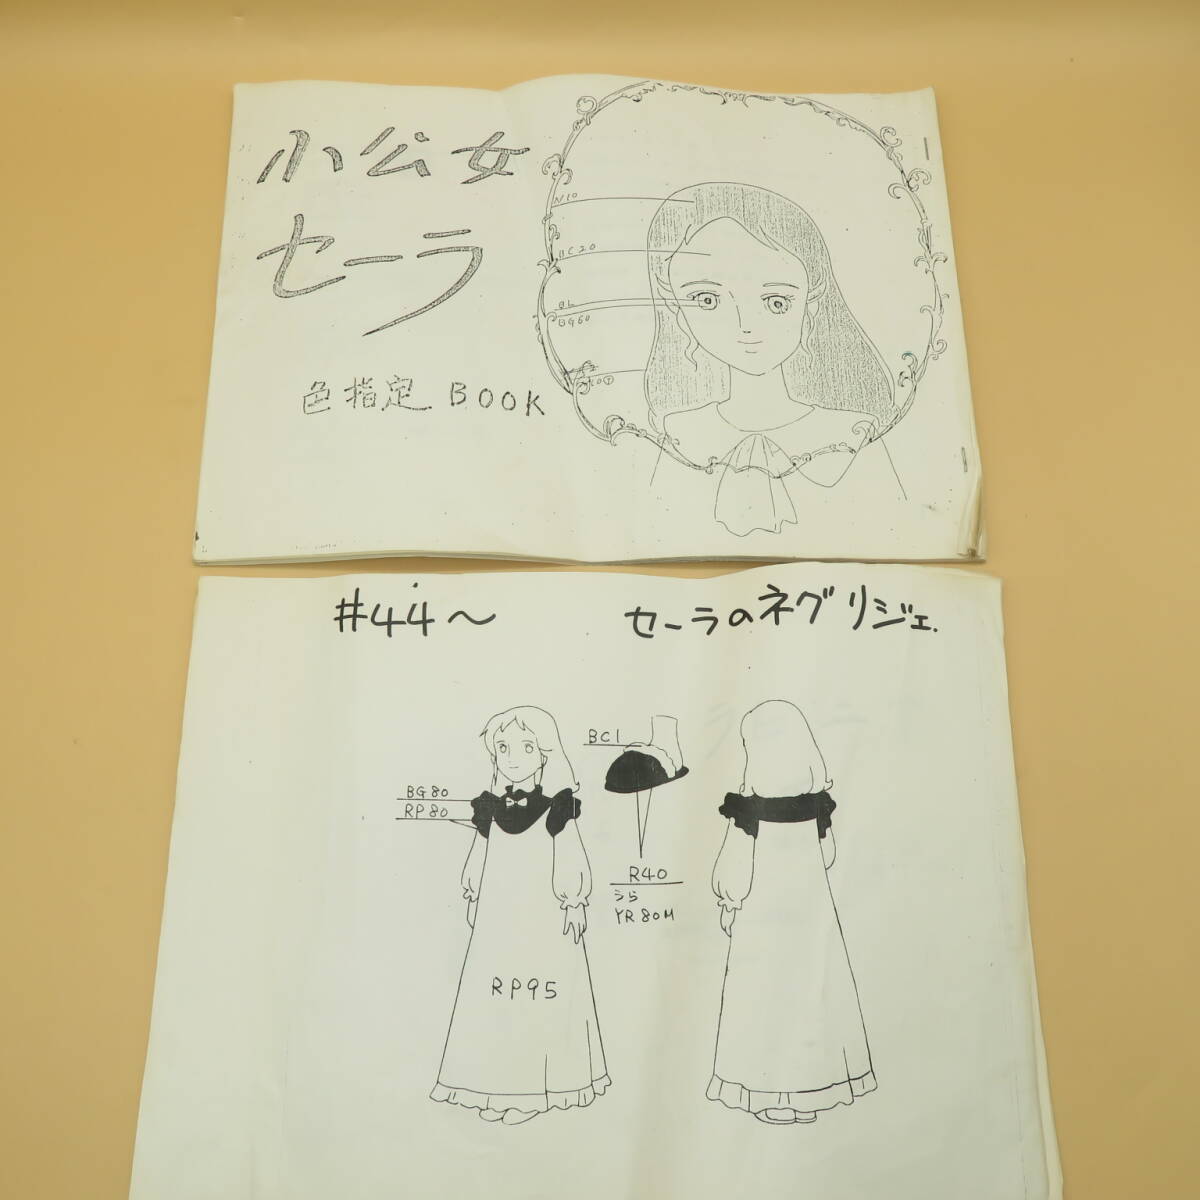 小公女
セーラ
色指定 BOOK
N10
BC20
BL
BG60
#44～
セーラのネグリジェ.
BC1
BG80
RP80
R40
うら
YR80M
RP95